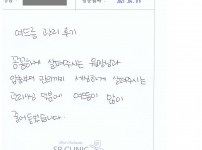 여드름 관리 후기
꼼꼼하게 상담해주시는 원장님과
압출부터 관리까지 세심하게 살펴주시는
관리사님 덕분에 여드름이 많이
줄어들었습니다.
SP CLINIC